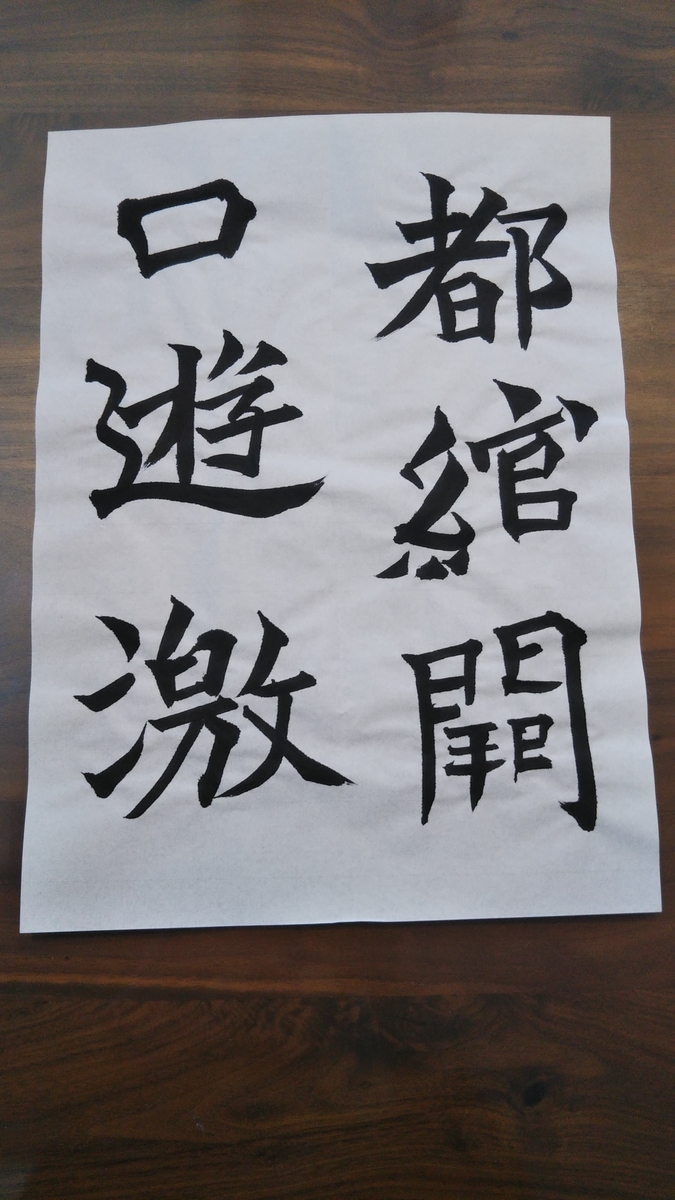 都綰
口遊激